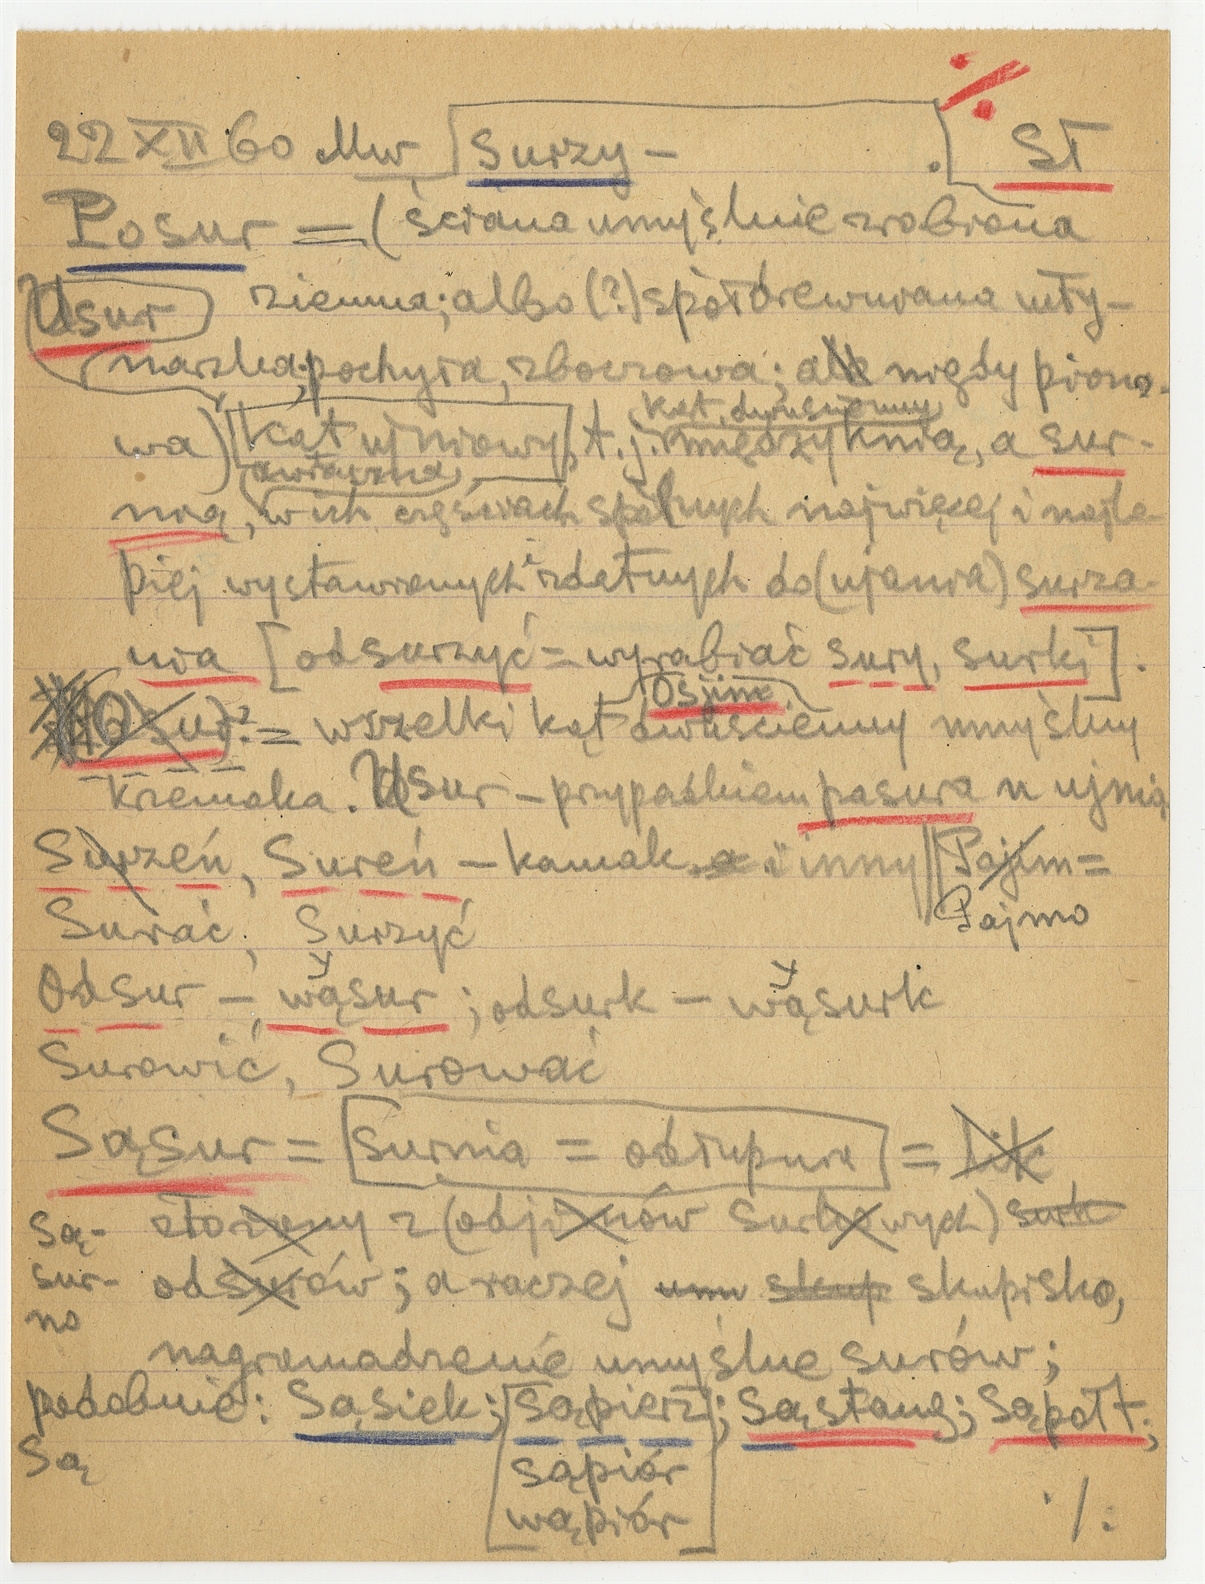 22 XII 60 Mw [Surzy- .] ST
Posur = (ściana umyślnie zrobiona
Usur ziemna; albo (?) spółdrewniana młty-
naszka; pochyła, zboczowa; ale nigdy piono-
kąt dwuścienny
wa) [kąt ujniowy], t.j. między knią, a sur-
zwłaszcza
nią, w ich częściach spólnych najwięcej i najle-
piej wystawionych i zdatnych do (ujania) surza-
nia [od surzyć = wyrabiać sury, surki].
Osjim
(Osur)? = wszelki kąt dwuścienny umyślny
krzemaka. Usur - przypadkiem pasura u ujnią
Surzeń, Sureń - kamak i inny || Pajim =
Pajmo
Surać, Surzyć
y y
Odsur - wąsur; odsurk - wąsurk
Surowić, Surować
Sąsur = [surnia = odłupnia] = lik
złożony z (odjimów surkowych) surk
Są-
sur-
no
odsurów; a raczej umy skup skupisko,
nagromadzenie umyślne surów;
podobnie: Sąsiek; [sąpierz]; Sąstang; Sąpołt;
Są sąpiór
wąpiór ./.